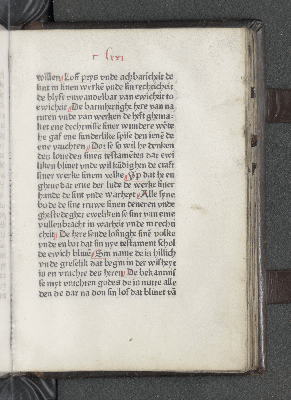 lxxi
willen. Loff prys vnde achbaricheit de
sint in sinen werkē vnde sin rechticheit
de blyft vnwandelbar van ewicheit to
ewicheit. De barmhertighe here van na
turen vnde van werken de heft ghema
ket ene dechtnisse siner wundere wōrte
he gaf ene sunderlike spise den ienē de
ene vruchten. Dor so wil he denken
des louedes sines testamētes dat ewi
liken bliuet vnde wil kūdighen de craft
siner werke sinem volke. Vp dat he en
gheue dat erue der lude de werke siner
hande de sint vnde warheyt. Alle syne
bode de sint truwe sinen deneren vnde
ghestedeghet eweliken se sint van eme
vullenbracht in warheit vnde in rechti
cheit. De here sende losinghe sinē volke
vnde en bot dat sin nye testament schol
de ewich bliuē. Sin name de is hillich
vnde greselik dat begin der wisheyt
is en vruchte des heren. De bekantnis
se myt vruchten godes de is nutte alle
den de dar na don sin lof dat bliuet vā